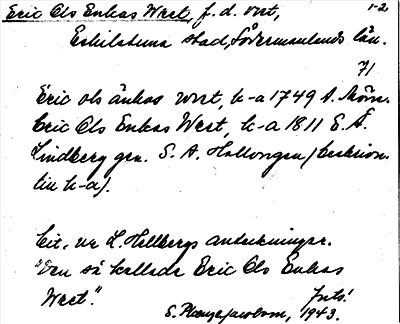 Eric Ols Enkas West, f. d. vret, 1-2
Eskilstuna stad, Södermanlands län.
71
Eric ols änkas vret, k-a 1749 A. Mörn.
Eric Ols Enkas West, k-a 1811 E. Å.
Lindberg gen. S. A. Hallongren (beskriv.
till k-a).
Cit. ur L. Hellbergs anteckningar.
"Den så kallade Eric Ols Enkas
West."
1943.